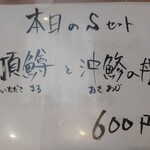 本日のSセット
頂鱒と沖鯵の丼
いただき ます おき あじ
600円